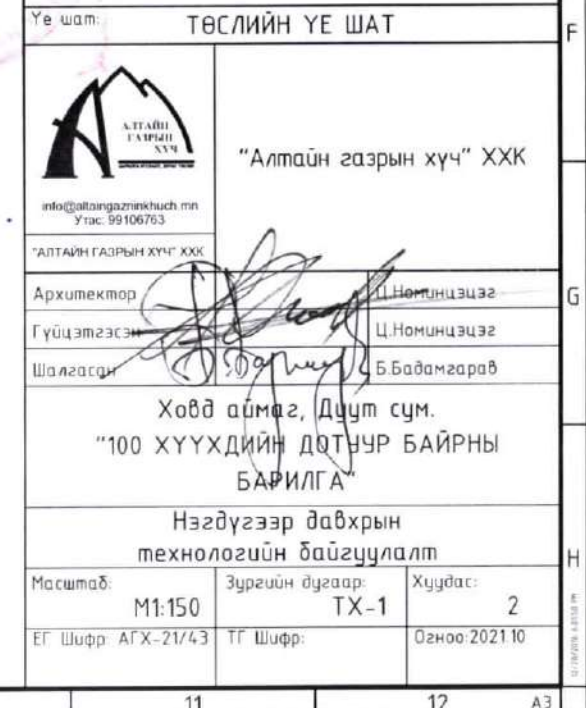 Үе шат:
ТӨСЛИЙН ҮЕ ШАТ
F
АЛТАЙН
ГАЗРЫН
ХҮЧ
info@altaingazriinkhuch.mn
Утас: 99106763
"АЛТАЙН ГАЗРЫН ХҮЧ" ХХК
"Алтайн газрын хүч" ХХК
G
Архитектор
Ц.Номинцэцэг
Гүйцэтгэсэн
Ц.Номинцэцэг
Шалгасан
Б.Бадамгарав
Ховд аймаг, Дуут сум.
"100 ХҮҮХДИЙН ДОТУУР БАЙРНЫ
БАРИЛГА"
Нэгдүгээр давхрын
технологийн байгуулалт
H
Масштаб:
Зургийн дугаар:
Хуудас:
М1:150
ТХ-1
2
ЕГ Шифр: АГХ-21/43
ТГ Шифр:
Огноо:2021.10
11
12
А3